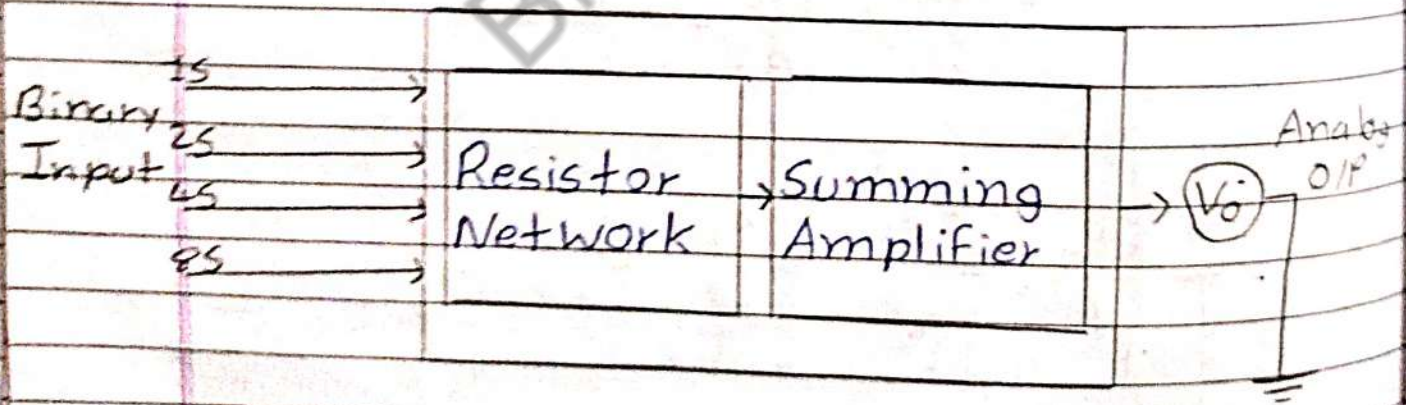 Binary
Input
1S
2S
4S
8S
Resistor
Network
Summing
Amplifier
Vo
Analog
O/P